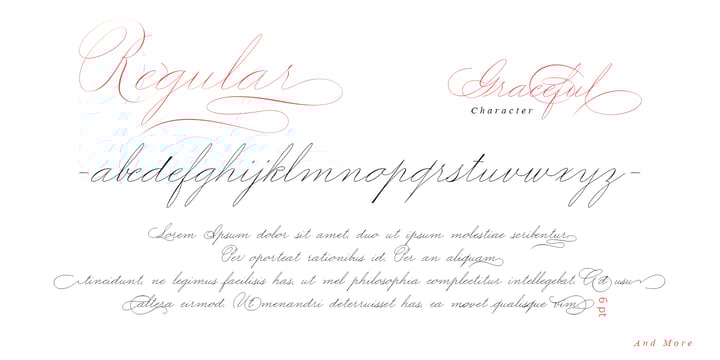 Regular
Graceful
Character
-abcdefghijklmnopqrstuvwxyz-
Lorem Ipsum dolor sit amet, duo ut ipsum molestiae scribentur,
Per oporteat rationibus id. Per an aliquam
tincidunt, ne legimus facilisis has, ut mel philosophia complectitur intellegebat. Ad usu
altera eirmod. Ut menandri deterruisset has, ea movet qualisque vim
6 pt
And More